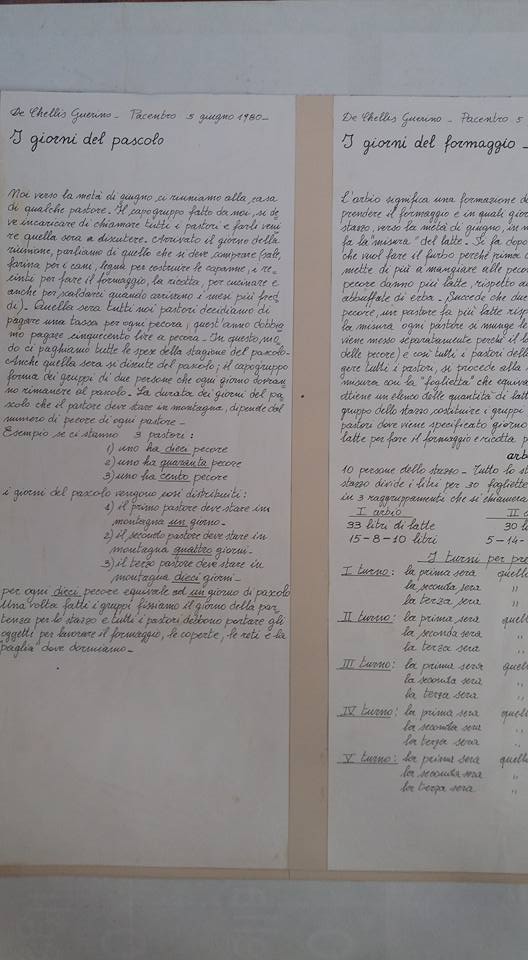 De Chellis Guerino - Pacentro 5 giugno 1980 -
I giorni del pascolo
Noi verso la metà di giugno, ci riuniamo alla casa
di qualche pastore. Il capogruppo fatto da noi, si de=
ve incaricare di chiamare tutti i pastori e farli veni
re quella sera a discutere. Arrivato il giorno della
riunione, parliamo di quello che si deve comprare (sale,
farina per i cani, legna per costruire le capanne, a re=
cinti per fare il formaggio, la ricotta, per cucinare e
anche per scaldarci quando arrivano i mesi più fred
di). Quella sera tutti noi pastori decidiamo di
pagare una tassa per ogni pecora; quest'anno dobbia
mo pagare cinquecento lire a pecora. In questo mo=
do ci paghiamo tutte le spese della stagione del pascolo -
Anche quella sera si discute del pascolo; il capogruppo
forma dei gruppi di due persone che ogni giorno dovran
no rimanere al pascolo. La durata dei giorni del pa=
scolo che il pastore deve stare in montagna, dipende dal
numero di pecore di ogni pastore -
Esempio se ci stanno 3 pastori:
1) uno ha dieci pecore
2) uno ha quaranta pecore
3) uno ha cento pecore
i giorni del pascolo vengono così distribuiti:
1) il primo pastore deve stare in
montagna un giorno -
2) il secondo pastore deve stare in
montagna quattro giorni -
3) il terzo pastore deve stare in
montagna dieci giorni -
per ogni dieci pecore equivale ad un giorno di pascolo
Una volta fatti i gruppi fissiamo il giorno della par=
tenza per lo stazzo e tutti i pastori debbono portare gli
oggetti per lavorare il formaggio, le coperte, le reti e la
"paglia" dove dormiamo -
De Chellis Guerino - Pacentro 5
I giorni del formaggio -
L'arbio significa una formazione d
prendere il formaggio e in quali gior
stazzo, verso la metà di giugno, in
fa la "misura" del latte. Si fa dopo
che vuol fare il furbo perché prima
mette di più a mangiare alle pecor
pecore danno più latte, rispetto
abbuffate di erba. Succede che due
pecore, un pastore fa più latte risp
la misura ogni pastore si munge le
viene messo separatamente perché il
delle pecore) e così tutti i pastori dell
gere tutti i pastori, si procede alla
misura con la "foglietta" che equiva
ottiene un elenco delle quantità di latt
gruppo dello stazzo, costituire i gruppi
pastori dove viene specificato giorno
latte per fare il formaggio e ricotta p
arb
10 persone dello stazzo - Tutto lo st
stazzo divide i litri per 30 fogliette
in 3 raggruppamenti che si chiamera
I arbio II a
33 litri di latte 30 l
15 - 8 - 10 litri 5 - 14 -
I turni per pre
I turno: la prima sera quell
la seconda sera "
la terza sera "
II turno: la prima sera quell
la seconda sera "
la terza sera "
III turno: la prima sera quell
la seconda sera "
la terza sera "
IV turno: la prima sera quell
la seconda sera "
la terza sera "
V turno: la prima sera quell
la seconda sera "
la terza sera "